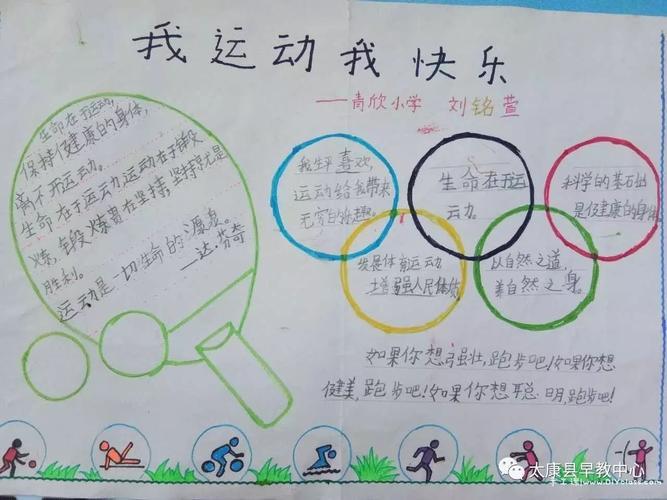 我运动我快乐
——青欣小学 刘铭萱
生命在于运动,
保持健康的身体,
离不开运动。
生命在于运动运动在于锻
炼,锻炼贵在坚持,坚持就是
胜利。
运动是一切生命的源泉。
——达·芬奇
我生平喜欢,
运动给我带来
无穷的乐趣。
生命在于运
动力。
科学的基础
是健康的身体
发展体育运动
增强人民体质
以自然之道,
养自然之身。
如果你想强壮,跑步吧!如果你想
健美,跑步吧!如果你想聪明,跑步吧!
太康县早教中心
手工课www.DIYclass.com